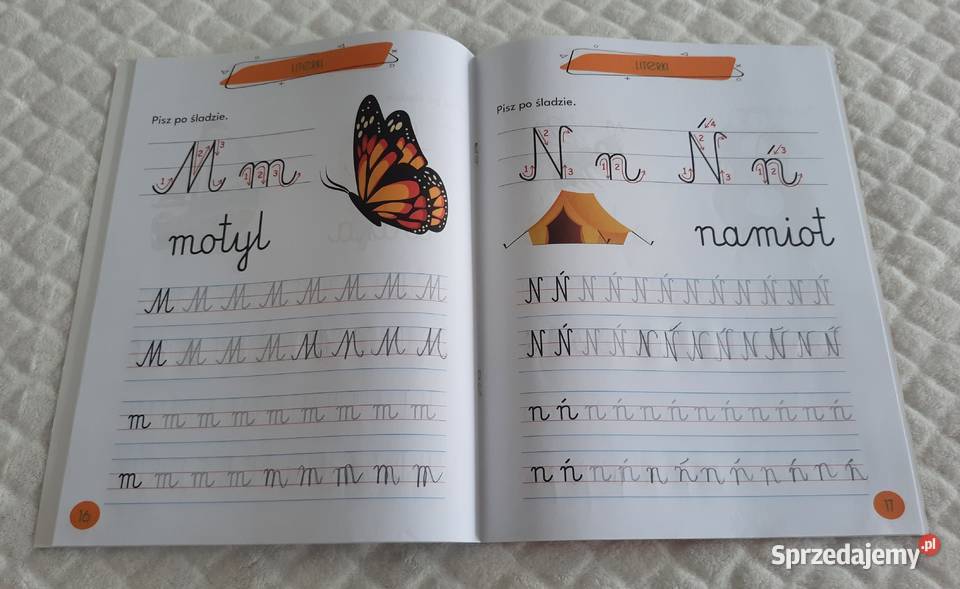 LITERKI
Pisz po śladzie.
M m
motyl
M M M M M M M M
M M M M M M M M
m m m m m m m m m
m m m m m m m m m
16
LITERKI
Pisz po śladzie.
N n Ń ń
namiot
N Ń N Ń N Ń N Ń N Ń N Ń
N Ń N Ń N Ń N Ń N Ń N Ń
n ń n ń n ń n ń n ń n ń
n ń n ń n ń n ń n ń n ń
17
Sprzedajemy.pl